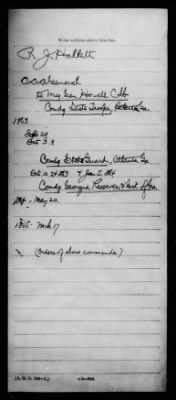 Write nothing above this line.
R. J. Hallett
A.A. General
to Maj Gen Howell Cobb
Comdg State Troops, Atlanta, Ga
1863
Sept 24
Oct 3. 9
Comdg State Guard, Atlanta Ga
Oct. 12. 24 1863 & Jan 5. 1864
Comdg Georgia Reserves & Mil. Dist of Ga.
1864 - May 20.
1865. Mch 17
(Orders of above commands)